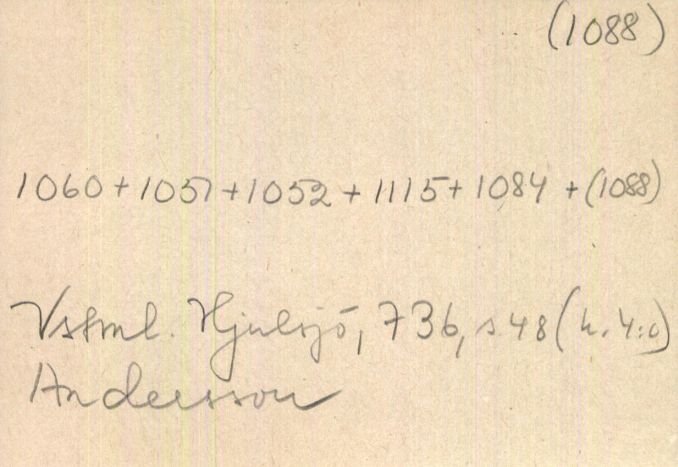 (1088)
1060+1051+1052+1115+1084+(1088)
Vstml. Hjulsjö, 736, s. 48 (h. 4:o)
Andersson